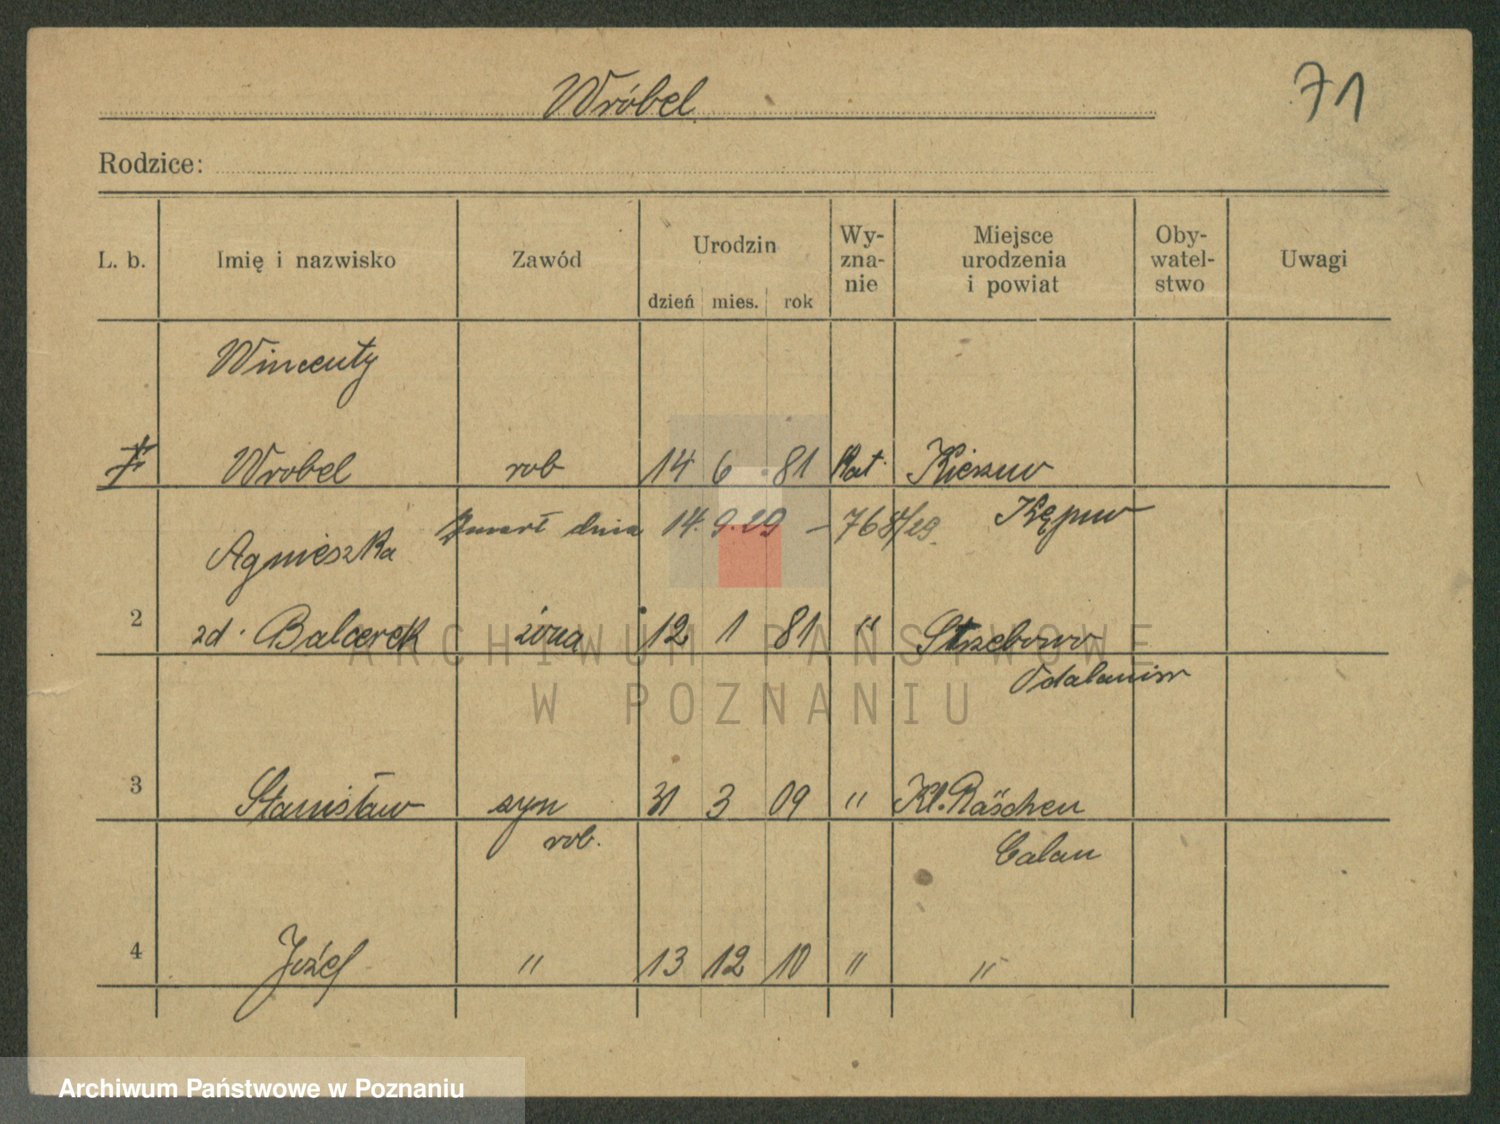 Wróbel
71
Rodzice:
L. b. Imię i nazwisko Zawód Urodzin dzień mies. rok Wy-zna-nie Miejsce urodzenia i powiat Oby-watel-stwo Uwagi
Wincenty
Wrobel rob 14 6 81 Kat.
Zmarł dnia 14.9.29 – 768/29 Kępno
Agnieszka
2 zd. Balcerek żona 12 1 81 " Strzebowo
Odalanów
3 Stanisław syn 31 3 09 " Kl. Räschen
rob. Calau
4 Józef " 13 12 10 " "
ARCHIWUM PAŃSTWOWE
W POZNANIU
Archiwum Państwowe w Poznaniu